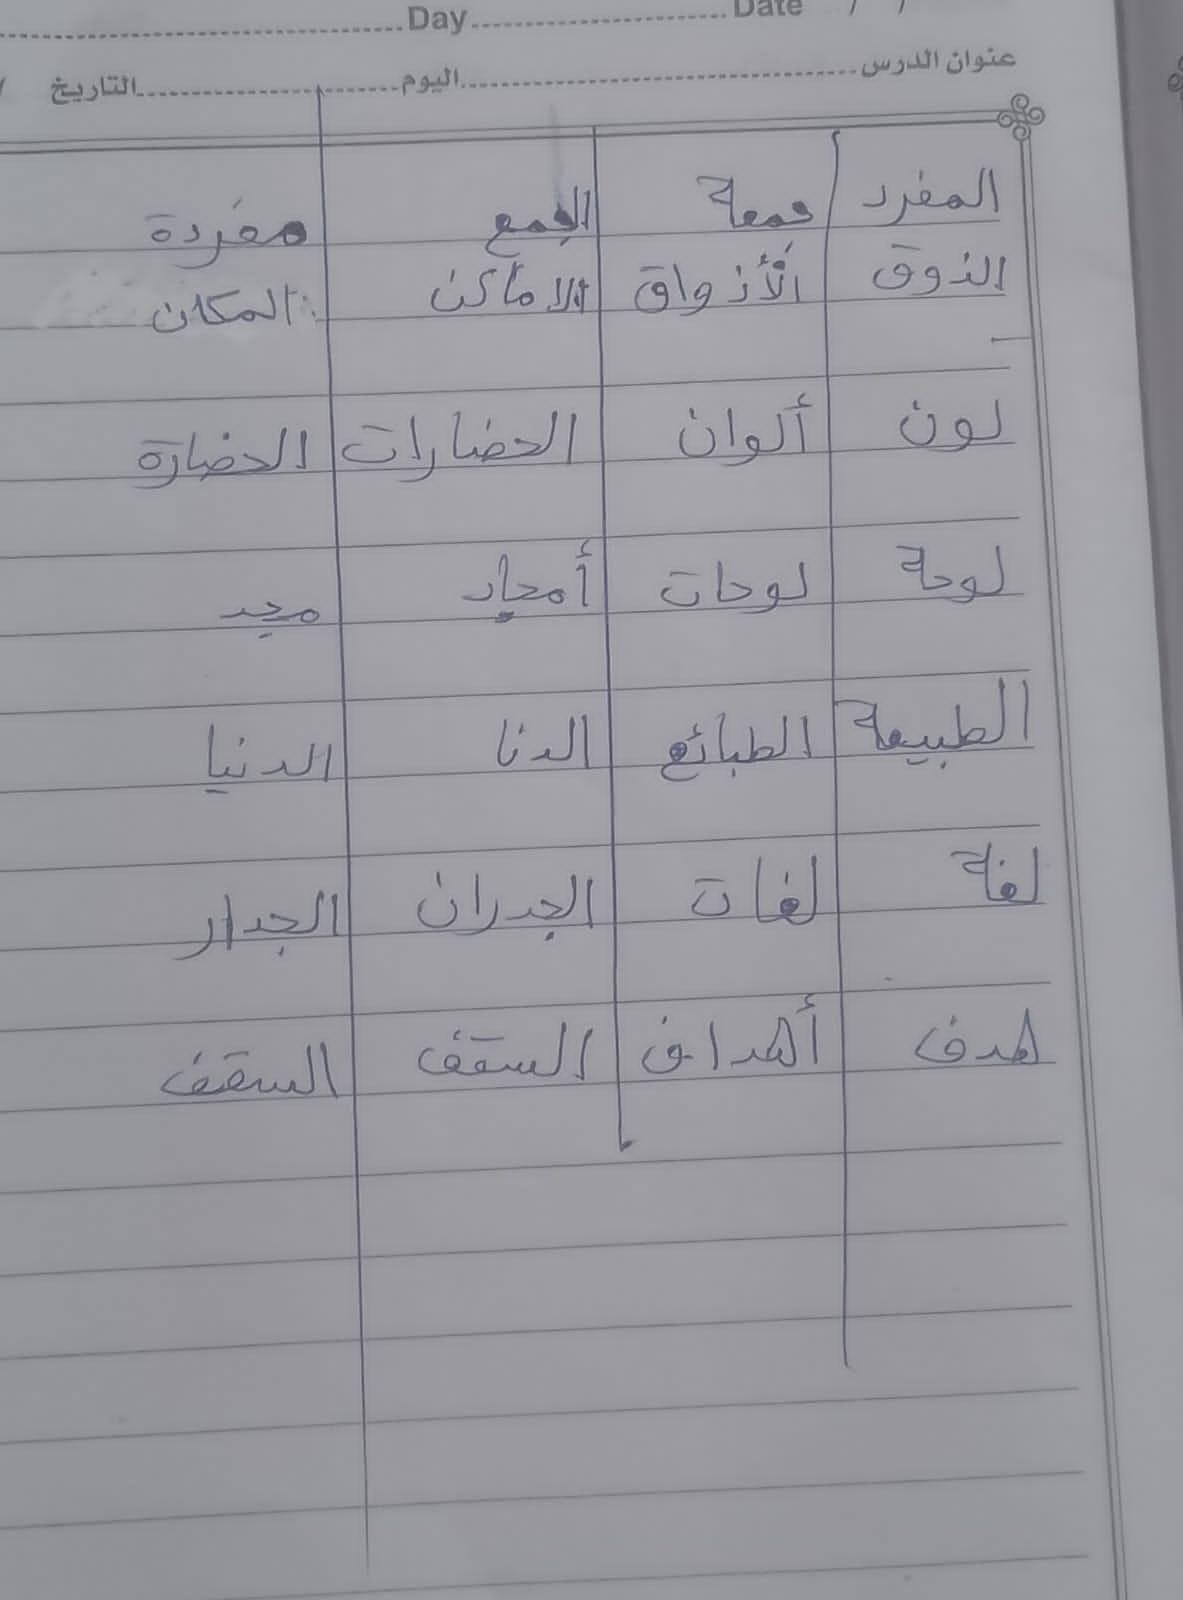 Day Date / /
عنوان الدرس اليوم التاريخ /
المفرد جمعة الجمع مفردة
الذوق الأذواق الاماكن المكان
لون ألوان الحضارات الحضارة
لوحة لوحات أمجاد مجد
الطبيعة الطبائع الدنا الدنيا
لغة لغات الجدران الجدار
هدف أهداف السقف السقف